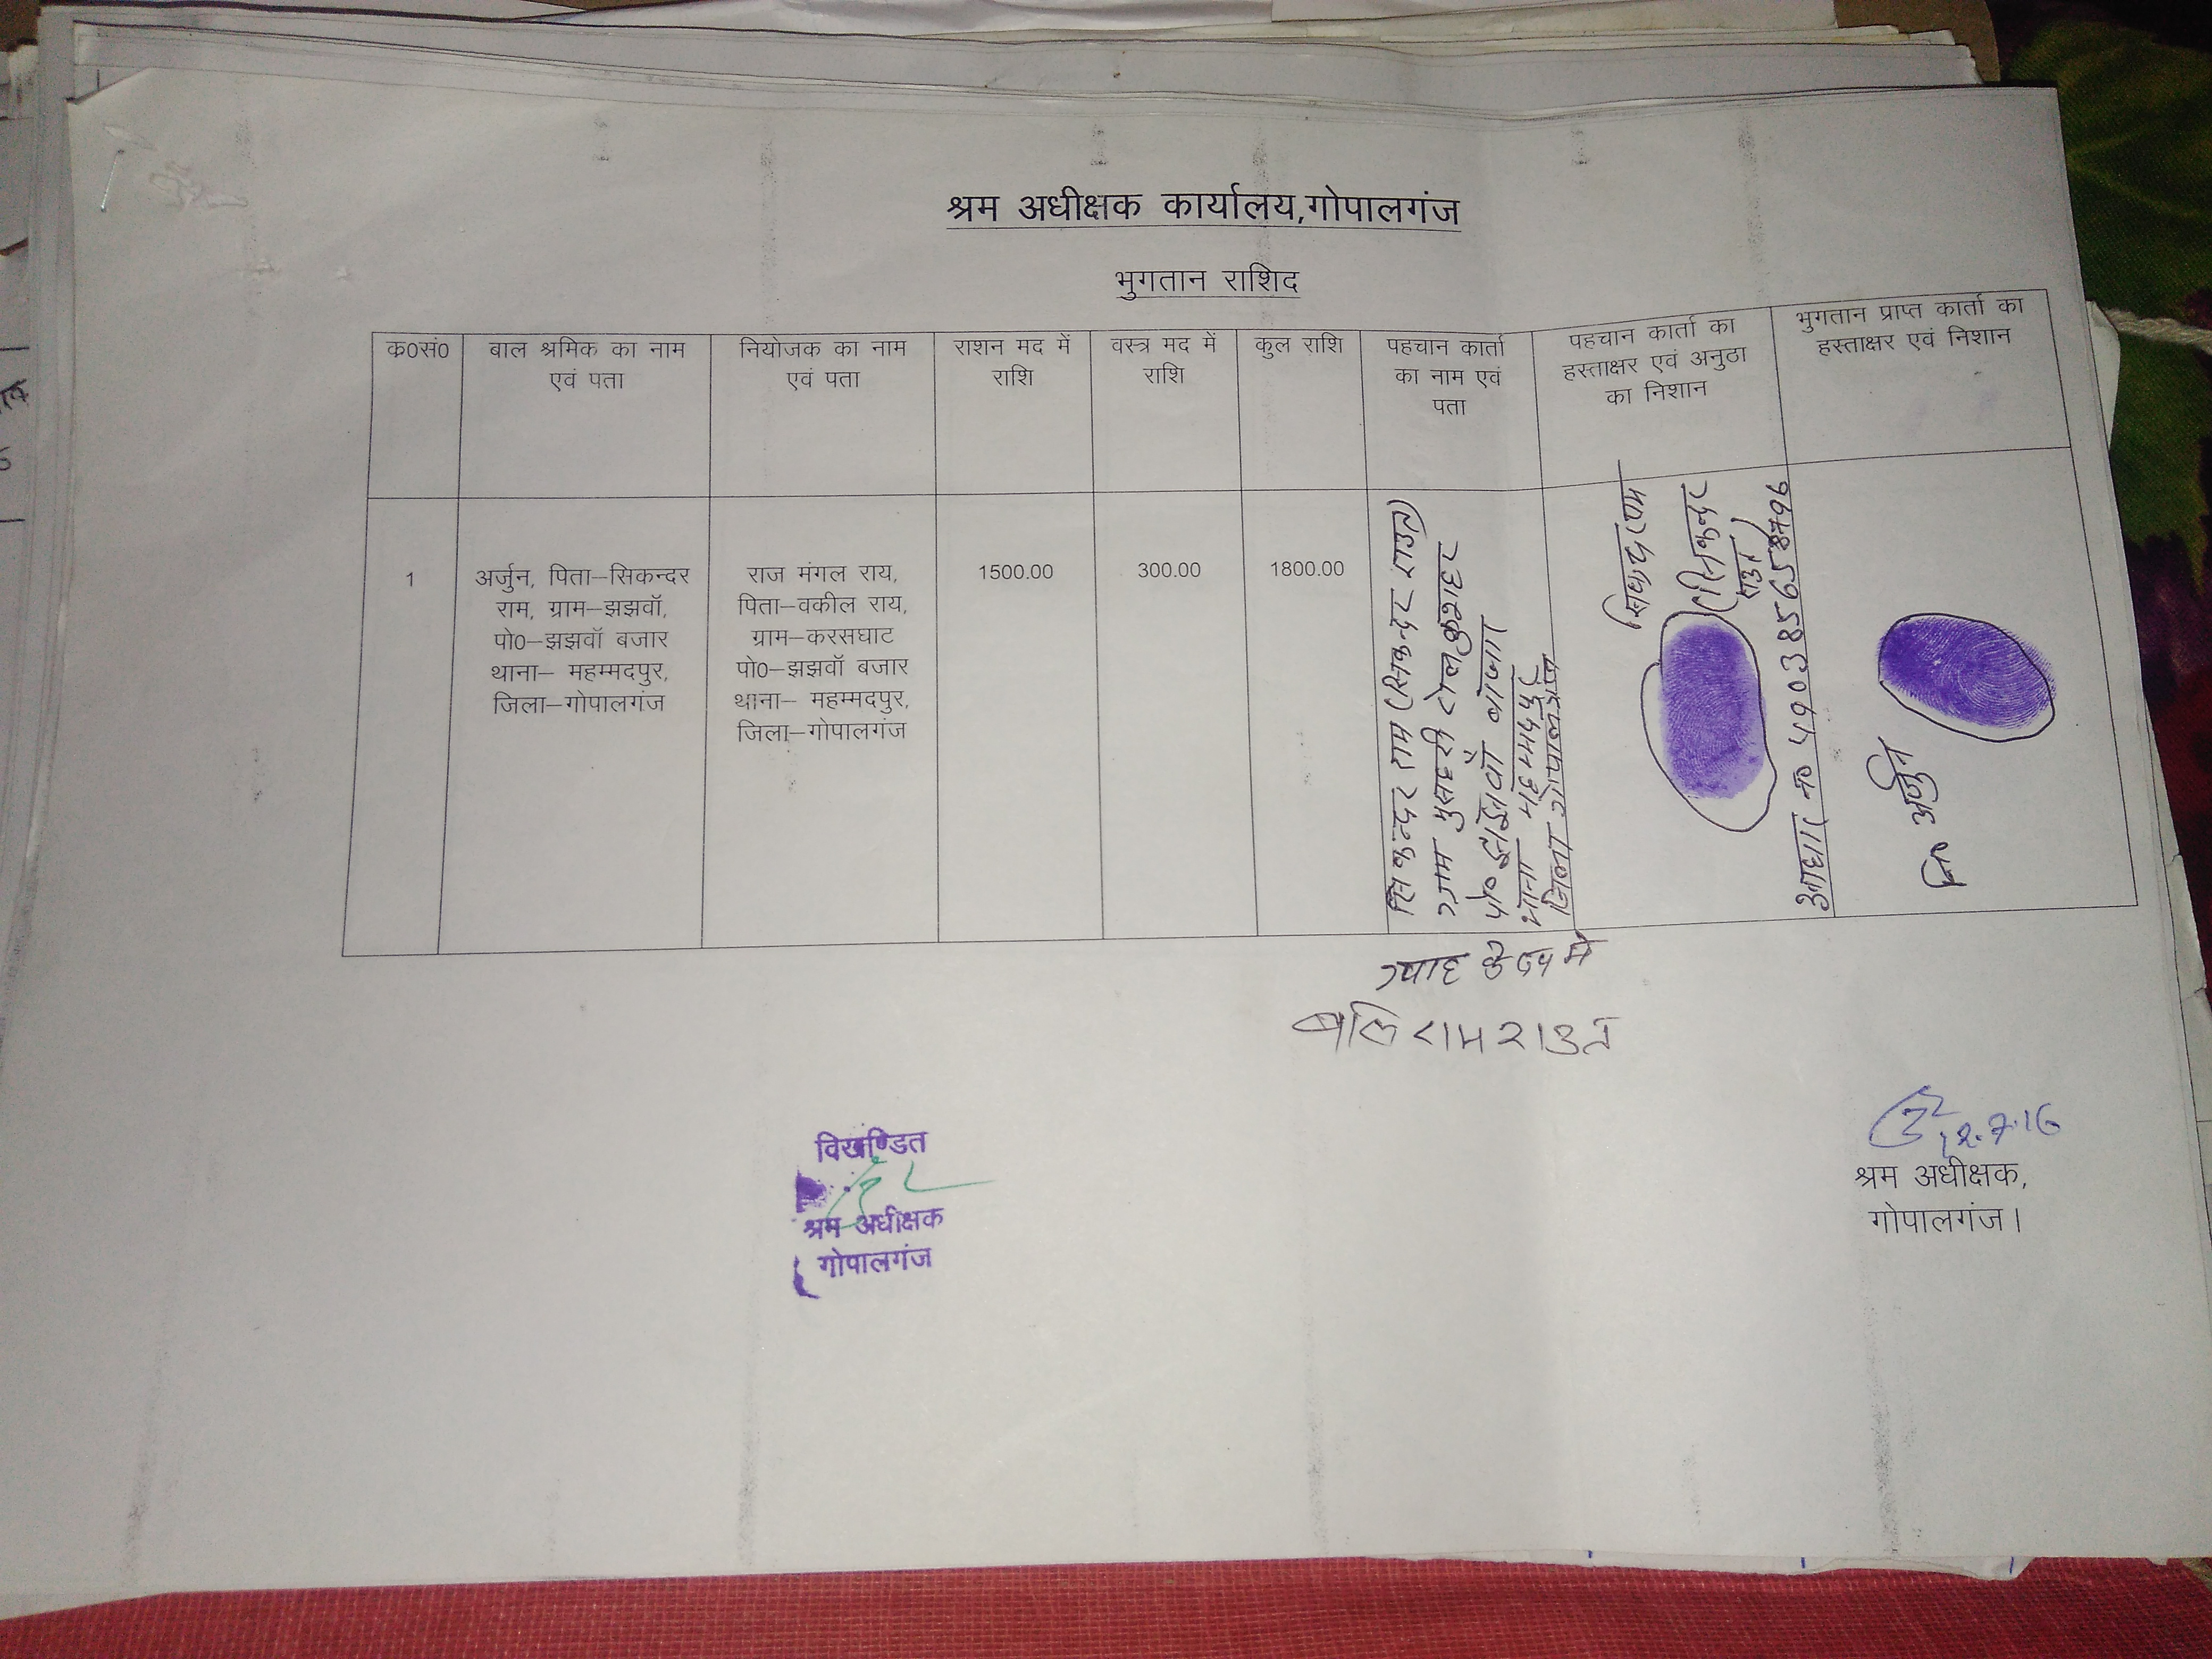 श्रम अधीक्षक कार्यालय,गोपालगंज
भुगतान राशिद
क0सं0
बाल श्रमिक का नाम
एवं पता
नियोजक का नाम
एवं पता
राशन मद में
राशि
वस्त्र मद में
राशि
कुल राशि
पहचान कार्ता
का नाम एवं
पता
पहचान कार्ता का
हस्ताक्षर एवं अनुठा
का निशान
भुगतान प्राप्त कार्ता का
हस्ताक्षर एवं निशान
1
अर्जुन, पिता–सिकन्दर
राम, ग्राम–झझवॉ,
पो0–झझवॉ बजार
थाना– महम्मदपुर,
जिला–गोपालगंज
राज मंगल राय,
पिता–वकील राय,
ग्राम–करसघाट
पो0–झझवॉ बजार
थाना– महम्मदपुर,
जिला–गोपालगंज
1500.00
300.00
1800.00
सिकन्दर राम (सिकन्दर राउत)
ग्राम मुसहरी टोल
पो० झझवॉ
थाना महम्मदपुर
जिला गोपालगंज
(सिकन्दर
राउत)
आधार न०
नि० अर्जुन
के रूप मे
बलि राम राउत
विखण्डित
श्रम अधीक्षक
गोपालगंज
12.7.16
श्रम अधीक्षक,
गोपालगंज।